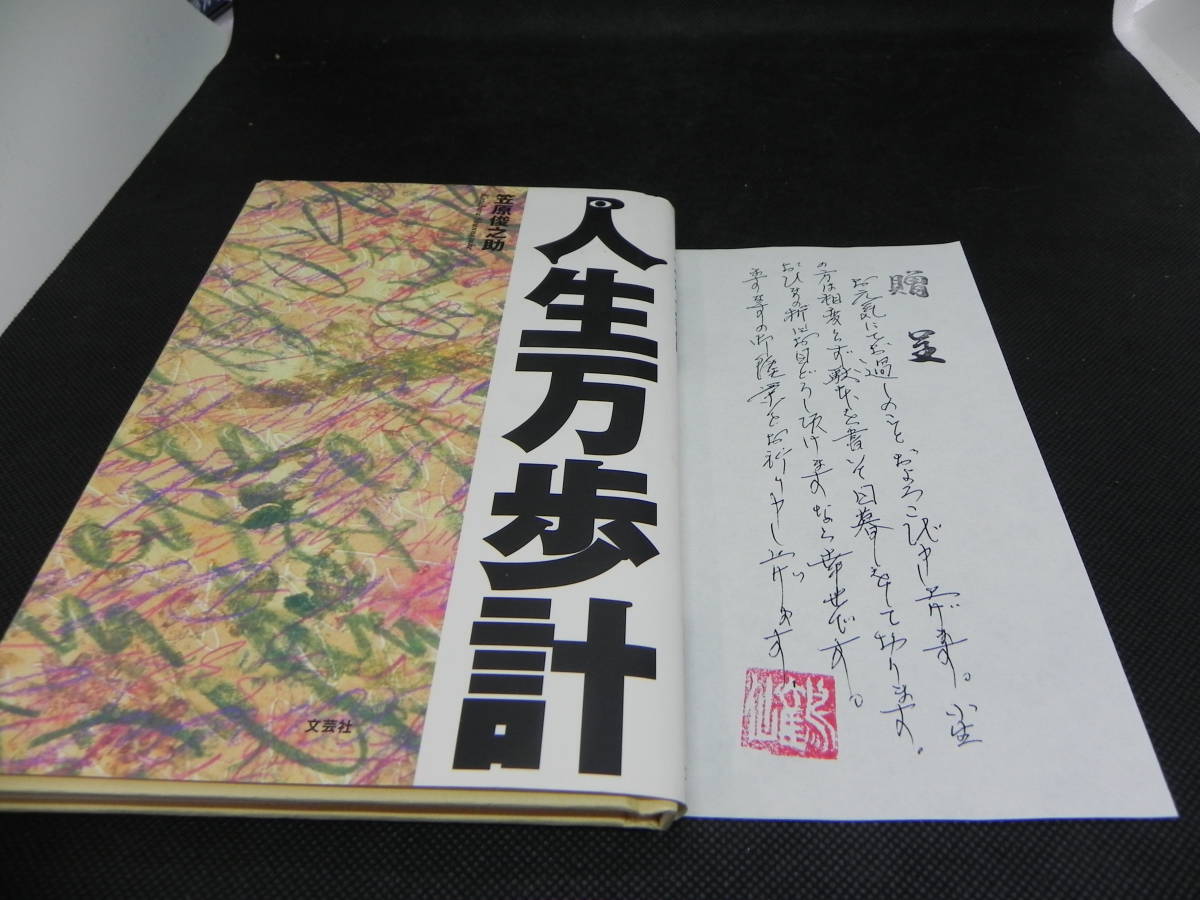 人生万歩計
笠原俊之助
文芸社
贈呈
お元気にてお過しのことおよろこび申し上げます。小生
の方は相変らず駄本を書いて日暮しをして居ります。
おひまの折にお目どうし頂けますなら幸せです。
益々の御隆栄をお祈り申し上げます